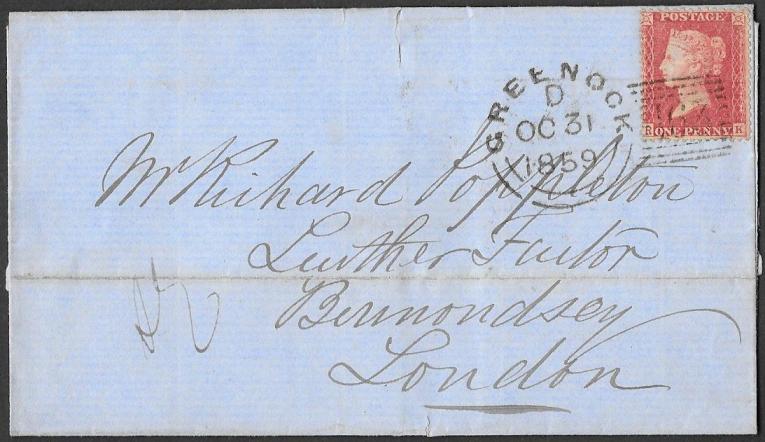 POSTAGE
R ONE PENNY K
GREENOCK
D
OC 31
1859
Mr Richard Poppleton
Leather Factor
Bermondsey
London